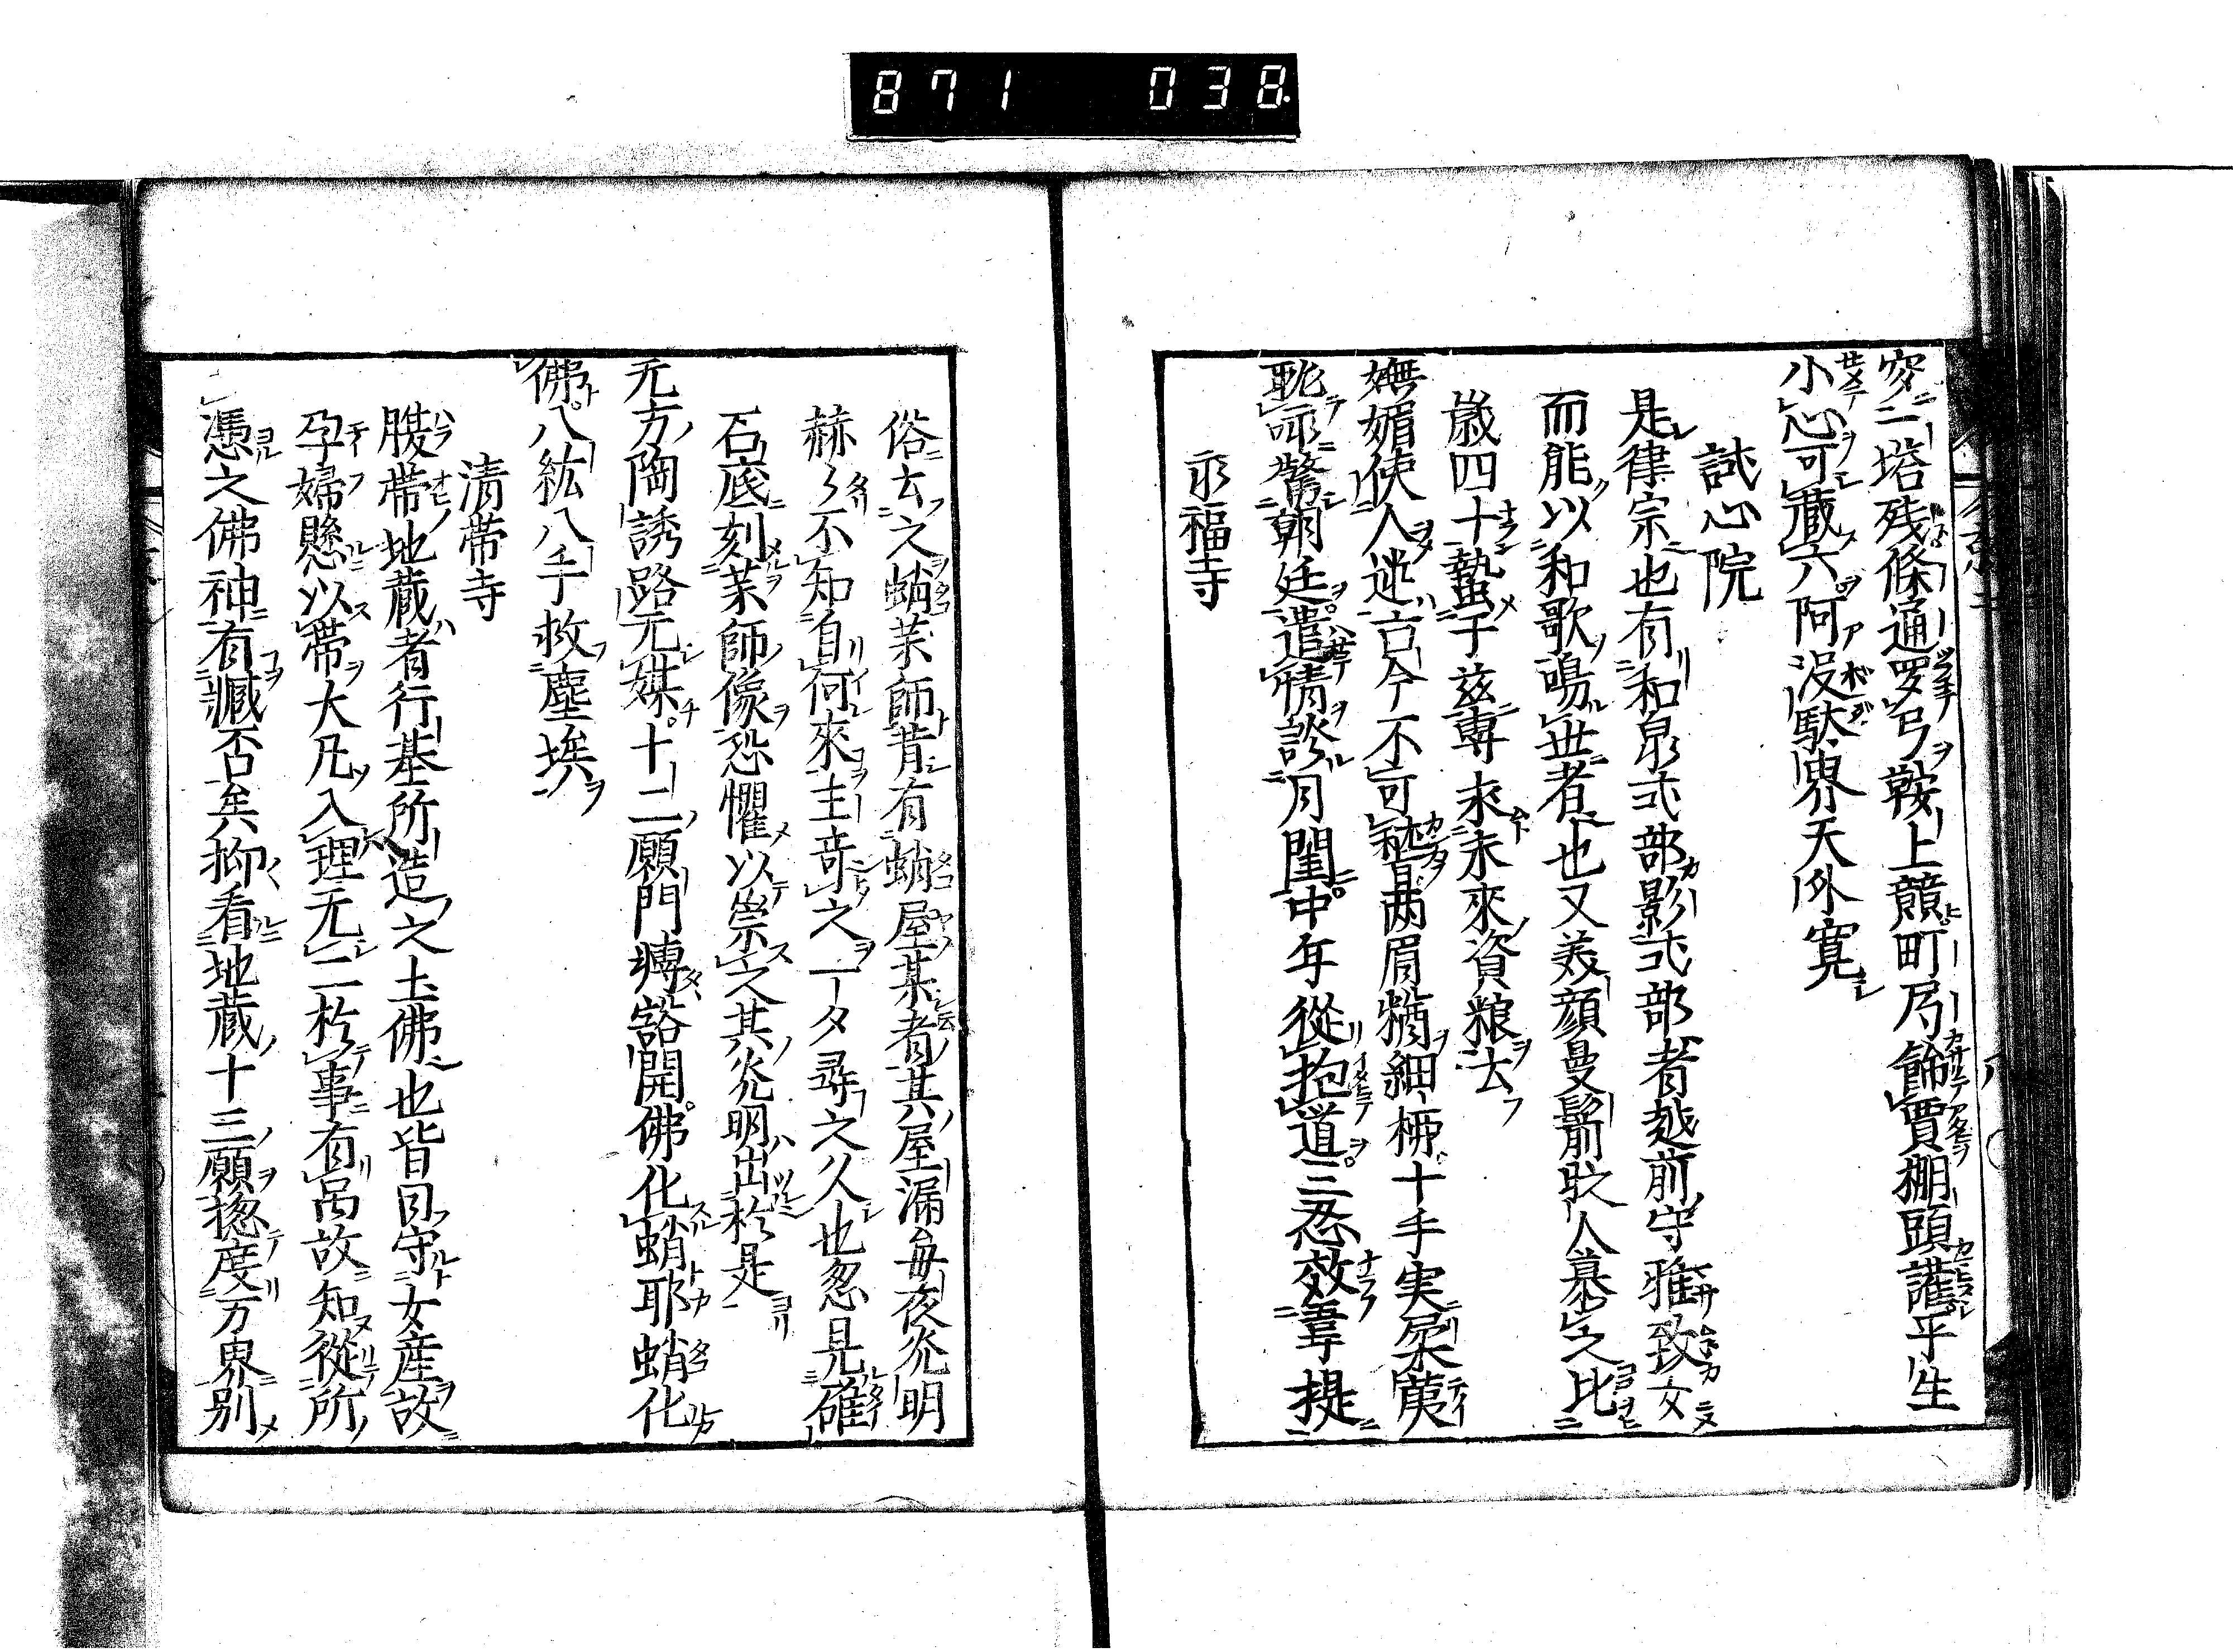 871 038
穾二塔残條通罗弓鞍上贑町局餝賈棚頭讙乎生
小心可藏六阿沒駄界天外寛
試心院
是律宗也有和泉式部影式部者越前守雅致女
而能以和歌鳴世者也又美顔曼鬋故人慕之比
歳四十蟄于兹専求未來資粮去
嫵媚使人迷古今不可秘首両眉猶細柳十手実柔荑
耽命驚朝廷遣情誇月閨中年從抱道三忍效韋提
永福寺
俗云之蛸茉師肯有蛸屋某者其屋漏每夜光明
赫々不知自何來主竒之一夕尋之久也忽見確
石底刻茉師像恐懼以崇之其光明出於是
无方陶誘路无媒十二願門溥豁開佛化蛸耶蛸化
佛八紘八手救塵埃
清帯寺
腹帯地蔵者行基所造之土佛也皆因守女産故
孕婦懸以帯大凡入理无二於事有咼故知從所
憑之佛神有臧否矣抑看地蔵十三願揔度万界別